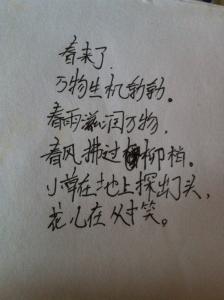 春来了,
万物生机勃勃。
春雨滋润万物,
春风拂过柳梢。
小草在地上探出了头,
花儿在对笑。